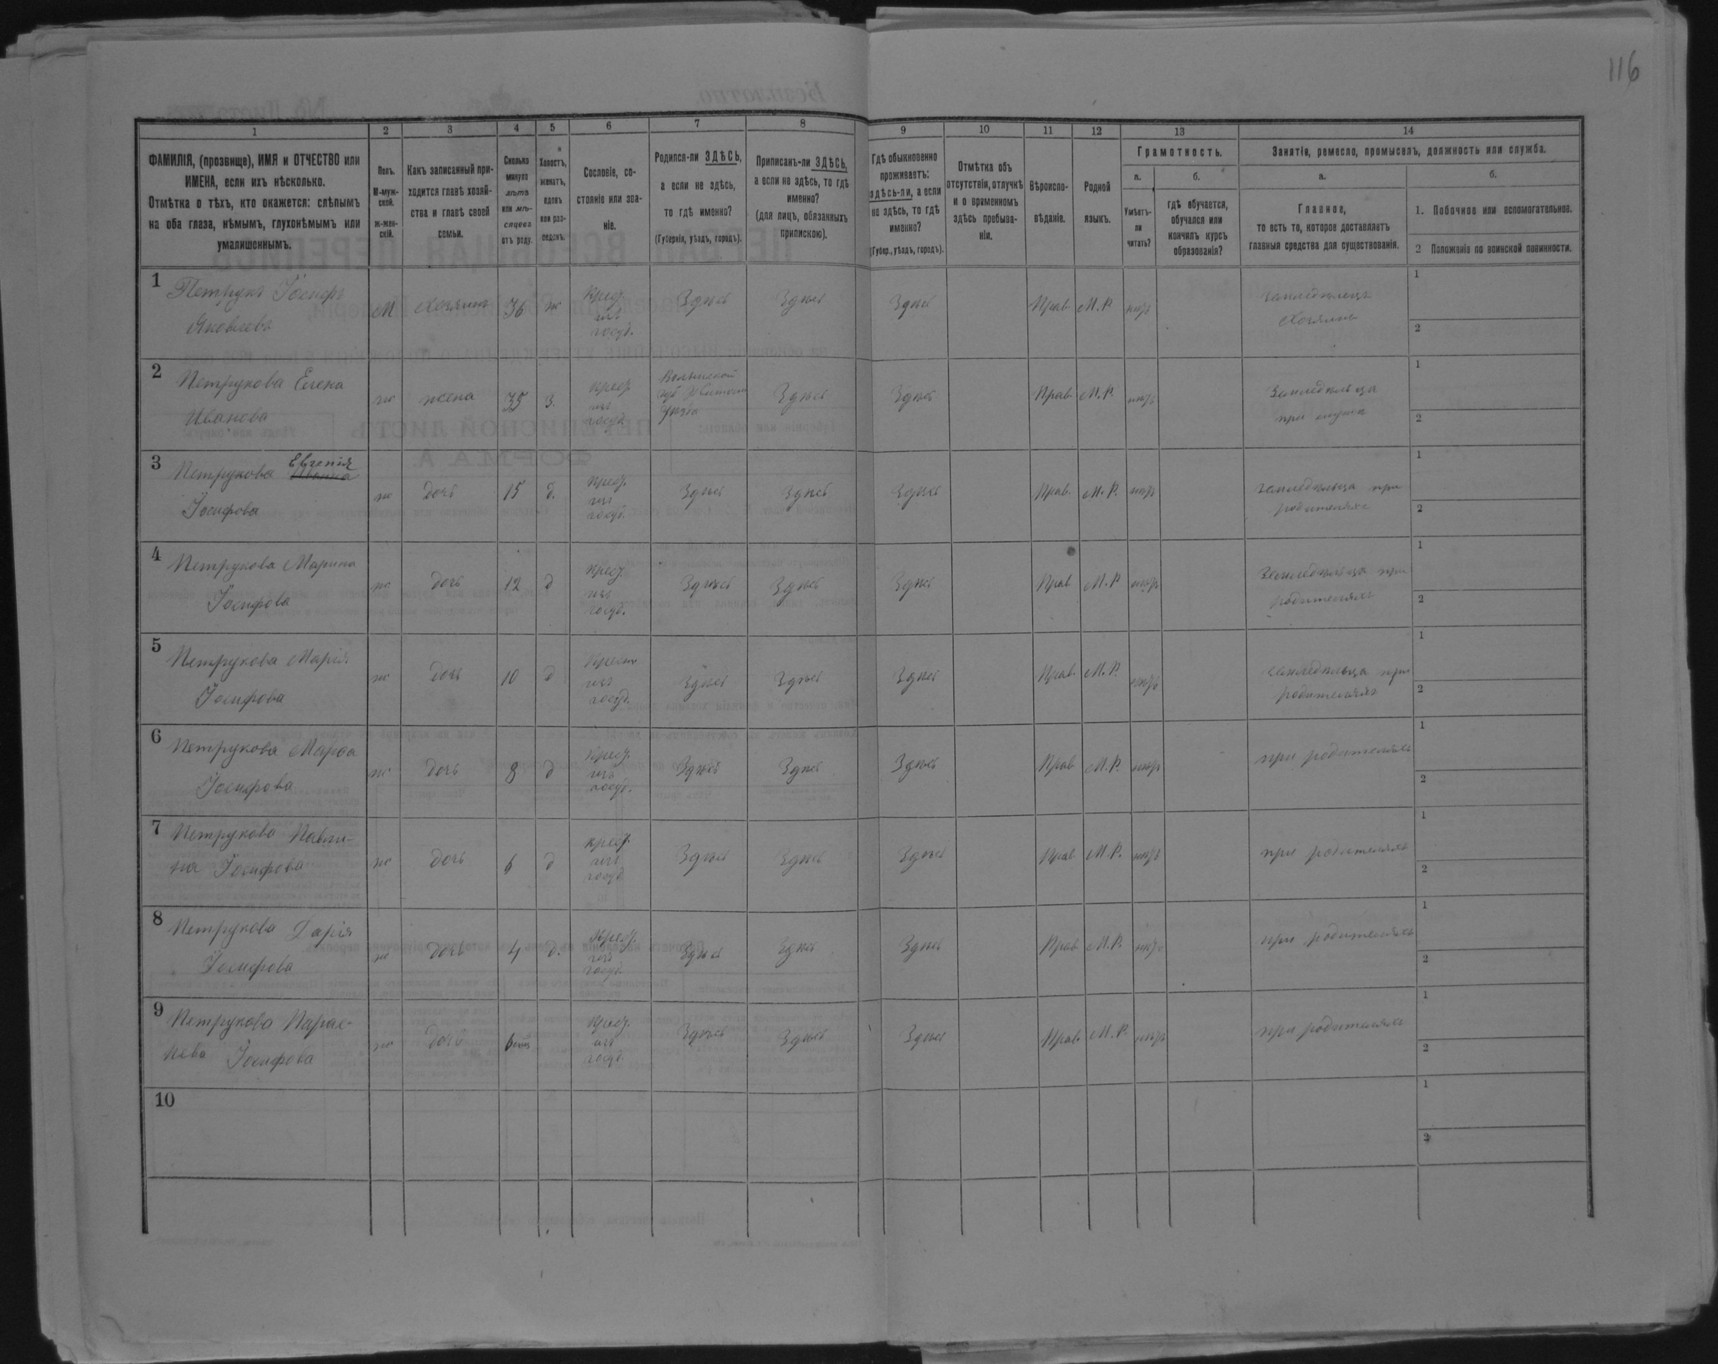 116
1
2
3
4
5
6
7
8
9
10
11
12
13
14
ФАМИЛІЯ, (прозвище), ИМЯ и ОТЧЕСТВО или
ИМЕНА, если ихъ нѣсколько.
Отмѣтка о тѣхъ, кто окажется: слѣпымъ
на оба глаза, нѣмымъ, глухонѣмымъ или
умалишеннымъ.
Полъ.
М-муж-
ской.
ж-жен-
скій.
Какъ записанный при-
ходится главѣ хозяй-
ства и главѣ своей
семьи.
Сколько
минуло
лѣтъ
или мѣ-
сяцевъ
отъ роду.
Холостъ,
женатъ,
вдовъ
или раз-
веденъ.
Сословіе, со-
стояніе или зва-
ніе.
Родился-ли ЗДѢСЬ,
а если не здѣсь,
то гдѣ именно?
(Губернія, уѣздъ, городъ).
Приписанъ-ли ЗДѢСЬ,
а если не здѣсь, то гдѣ
именно?
(для лицъ, обязанныхъ
припискою).
Гдѣ обыкновенно
проживаетъ:
здѣсь-ли, а если
не здѣсь, то гдѣ
именно?
(Губер., уѣздъ, городъ).
Отмѣтка объ
отсутствіи, отлучкѣ
и о временномъ
здѣсь пребыва-
ніи.
Вѣроиспо-
вѣданіе.
Родной
языкъ.
Грамотность.
а.
б.
Умѣетъ-
ли
читать?
гдѣ обучается,
обучался или
кончилъ курсъ
образованія?
Занятіе, ремесло, промыселъ, должность или служба.
а.
б.
Главное,
то есть то, которое доставляетъ
главныя средства для существованія.
1. Побочное или вспомогательное.
2 Положеніе по воинской повинности.
1
Петрукъ Іосифъ
Яковлевъ
М
Хозяинъ
36
ж
Крест.
изъ
госуд.
Здѣсь
Здѣсь
Здѣсь
Прав
М.Р.
Хозяинъ
1
2
2
Петрукова Елена
Иванова
жена
35
З.
Крест
изъ
госуд
Волынской
Здѣсь
Здѣсь
Прав
М.Р.
1
2
3
Петрукова Евгенія
Іосифова
дочь
15
д.
Крест.
изъ
госуд.
Здѣсь
Здѣсь
Здѣсь
Прав.
М.Р.
при
родителяхъ
1
2
4
Петрукова Марина
Іосифова
дочь
12
д
Крест.
изъ
госуд.
Здѣсь
Здѣсь
Здѣсь
Прав
М.Р.
при
родителяхъ
1
2
5
Петрукова Марія
Іосифова
дочь
10
д
Крест
изъ
госуд.
Здѣсь
Здѣсь
Здѣсь
Прав.
М.Р.
при
родителяхъ
1
2
6
Петрукова Марѳа
Іосифова
дочь
8
д
Крест.
изъ
госуд.
Здѣсь
Здѣсь
Здѣсь
Прав
М.Р.
при родителяхъ
1
2
7
Петрукова Павли-
на Іосифова
дочь
6
д
Крест.
изъ
госуд
Здѣсь
Здѣсь
Здѣсь
Прав
М.Р.
при родителяхъ
1
2
8
Петрукова Дарія
Іосифова
дочь
4
д.
Крест.
изъ
госуд.
Здѣсь
Здѣсь
Здѣсь
Прав
М.Р.
при родителяхъ
1
2
9
Петрукова Парас-
кева Іосифова
дочь
Крест.
изъ
госуд.
Здѣсь
Здѣсь
Здѣсь
Прав.
М.Р.
при родителяхъ
1
2
10
1
2